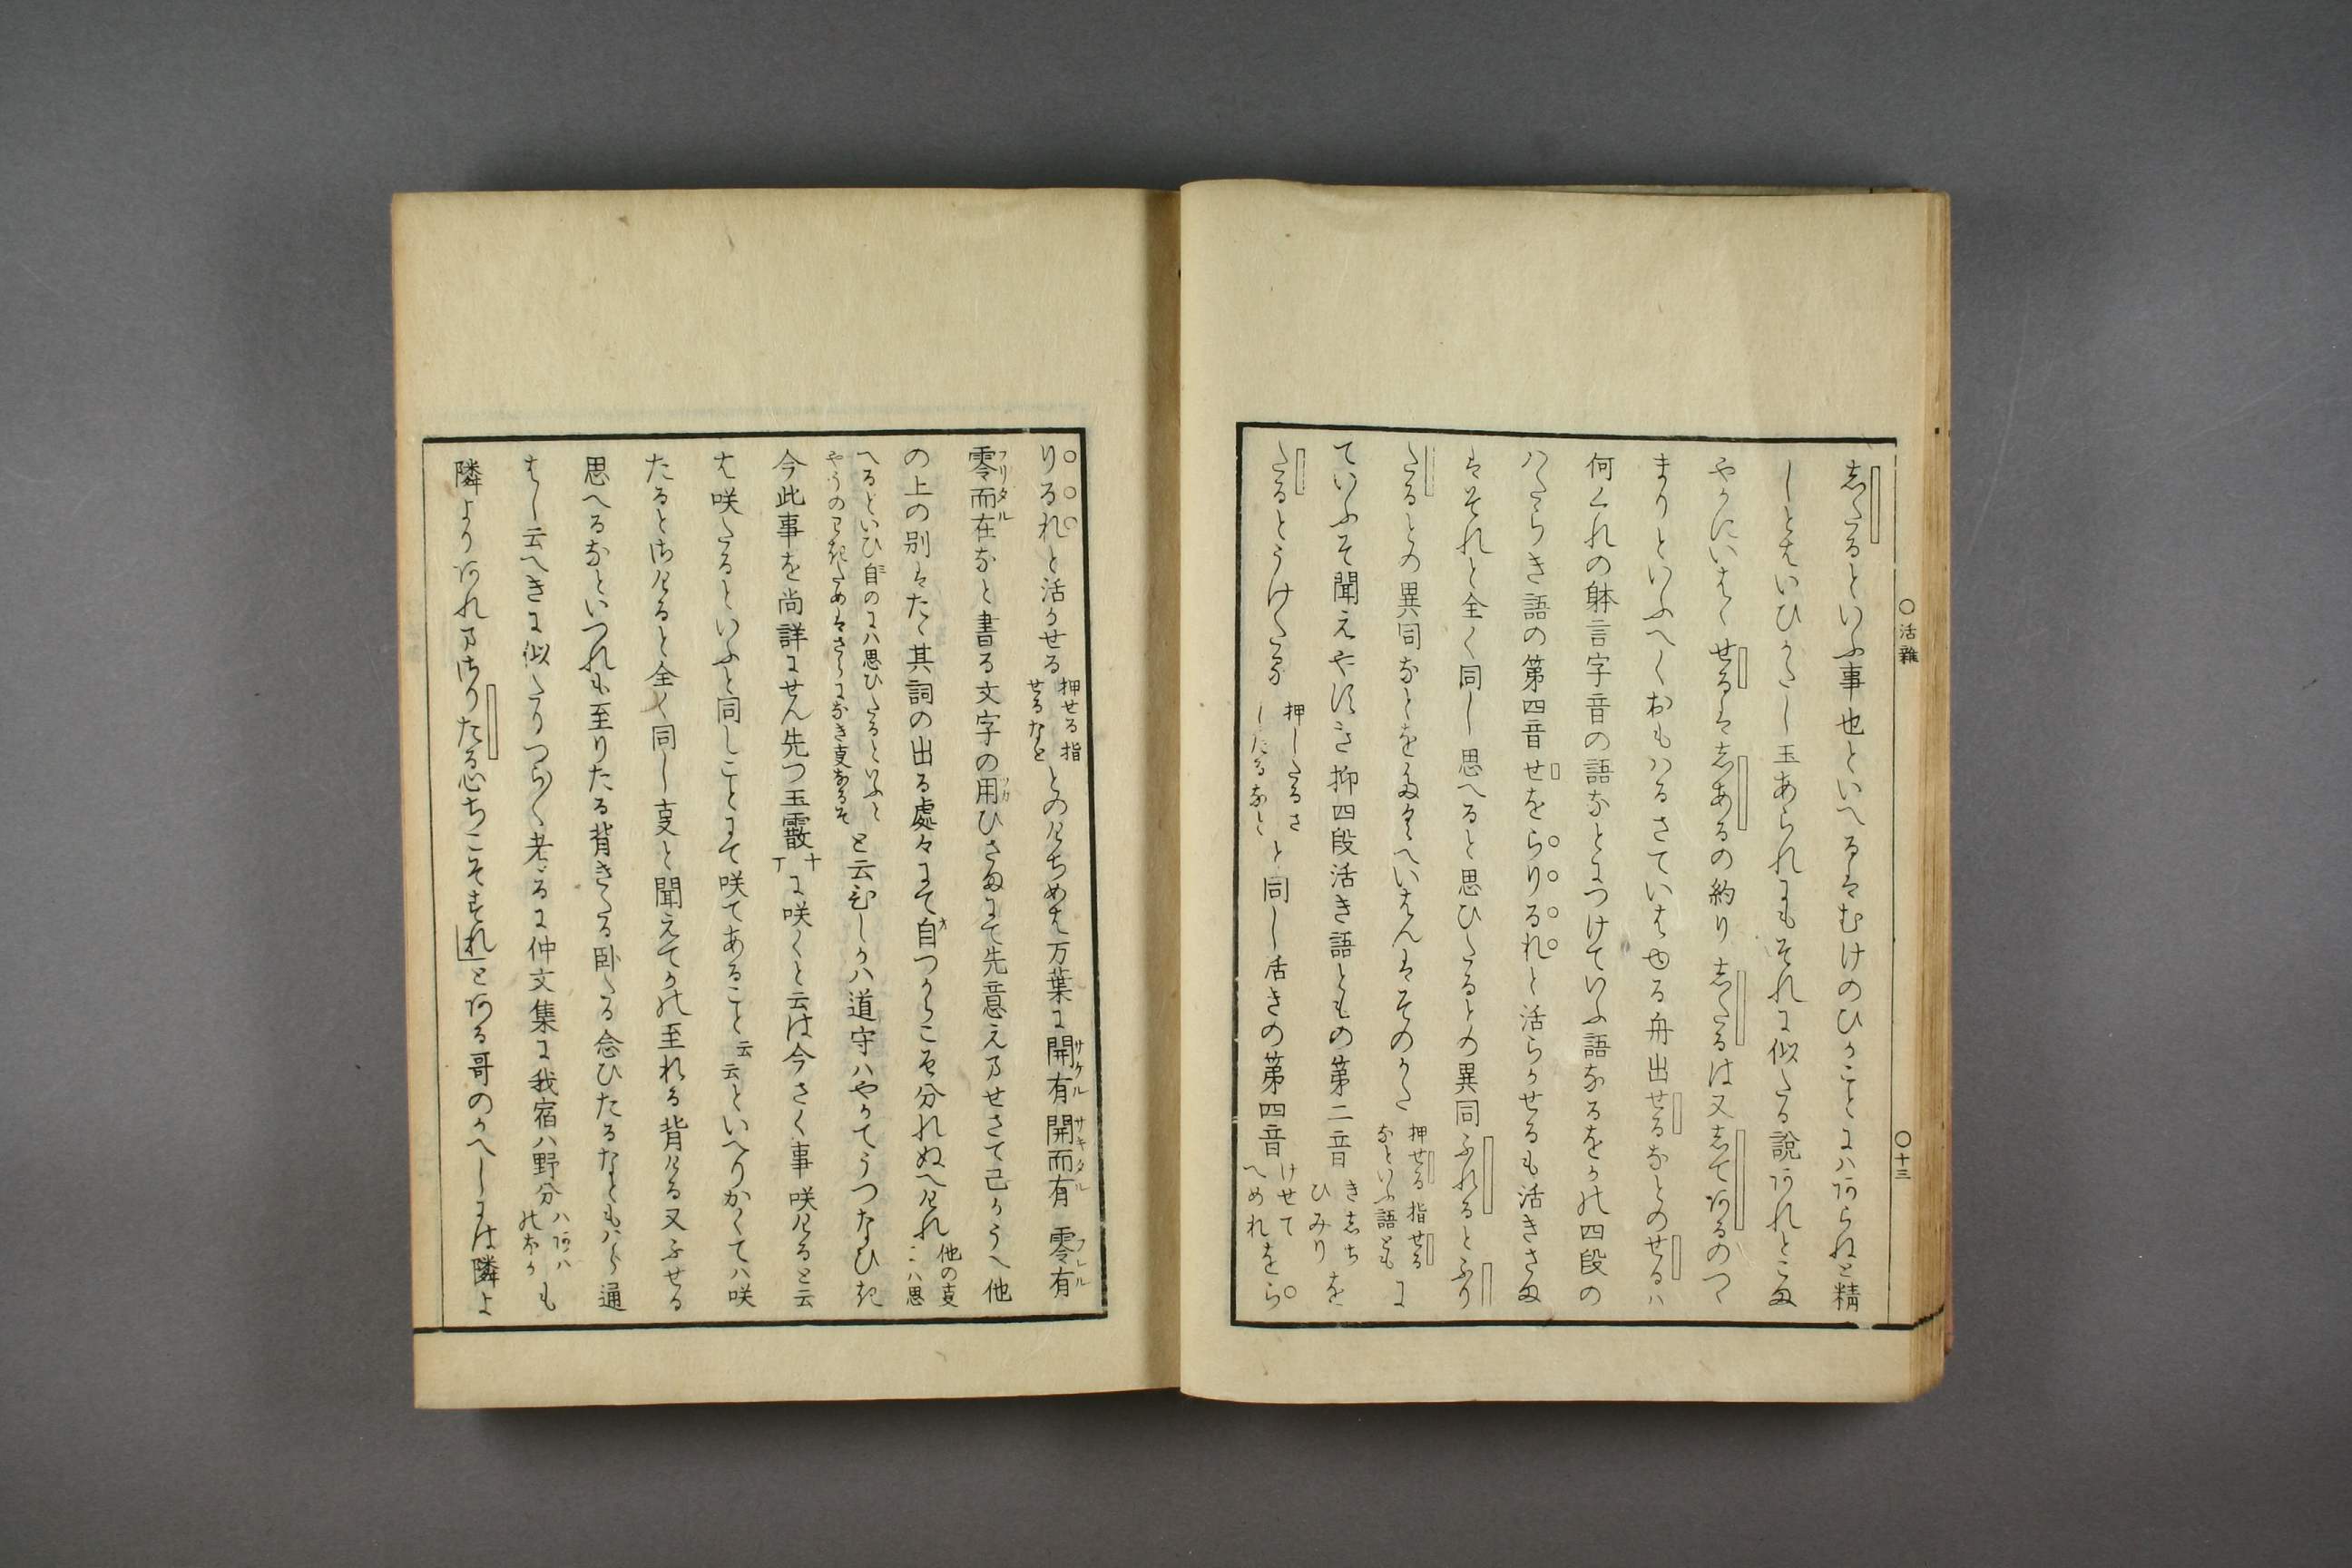 ○活雜 ○十三
志たるといふ事也といへるはむけのひかことにハあらぬと精
しとはいひかたし玉あられにもそれに似たる説あれとこま
やかにいはゝせるは志あるの約り志たるは又志てあるのつゝ
まりといふへくおもハるさていはゆる舟出せるなとのせるハ
何くれの躰言字音の語なとにつけていふ語なるをかの四段の
ハたらき語の第四音せをらりるれと活らかせるも活きさま
はそれと全く同し思へると思ひたるとの異同ふれるとふり
たるとの異同なとをまなへいはんはそのかた 押せる指せるなといふ語とも に
ていふそ聞えやすき抑四段活き語ともの第二音 きしちひみり を
たるとうけたる 押したるさしたるなと と同し活きの第四音 けせてへめれ をら
りるれと活かせる 押せる指せるなと とのけちめは万葉に開有サケル開而有サキタル零有フレル
零而在フリタルなと書る文字の用ひさまにて先意え乃せさて己かうへ他
の上の別はたゝ其詞の出る處々にて自つからこそ分れぬへけれ 他の事ハ思
へるといひ自のにハ思ひたるといふと と云むしかハ道守ハやかてうつなひき
今此事を尚詳にせん先つ玉霰 十丁 に咲くと云は今さく事咲けると云
は咲たるといふと同しことにて咲てあること云云といへりかくてハ咲
たるとさけると全く同し事と聞えてかの至れる背ける又ふせる
思へるなといつれも至りたる背きたる臥たる念ひたるなともハら通
はし云へきに似たりつらつら考るに仲文集に我宿ハ野分 ハあハのなか も
隣よりあれ乃さりたる心ちこそすれとある哥のかへしには隣よ